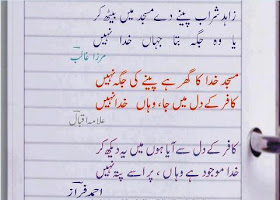 زاہد شراب پینے دے مسجد میں بیٹھ کر
یا وہ جگہ بتا جہاں خدا نہیں
مرزا غالب
مسجد خدا کا گھر ہے پینے کی جگہ نہیں
کافر کے دل میں جا، وہاں خدا نہیں
علامہ اقبال
کافر کے دل سے آیا ہوں میں یہ دیکھ کر
خدا موجود ہے وہاں، پر اسے پتہ نہیں
احمد فراز